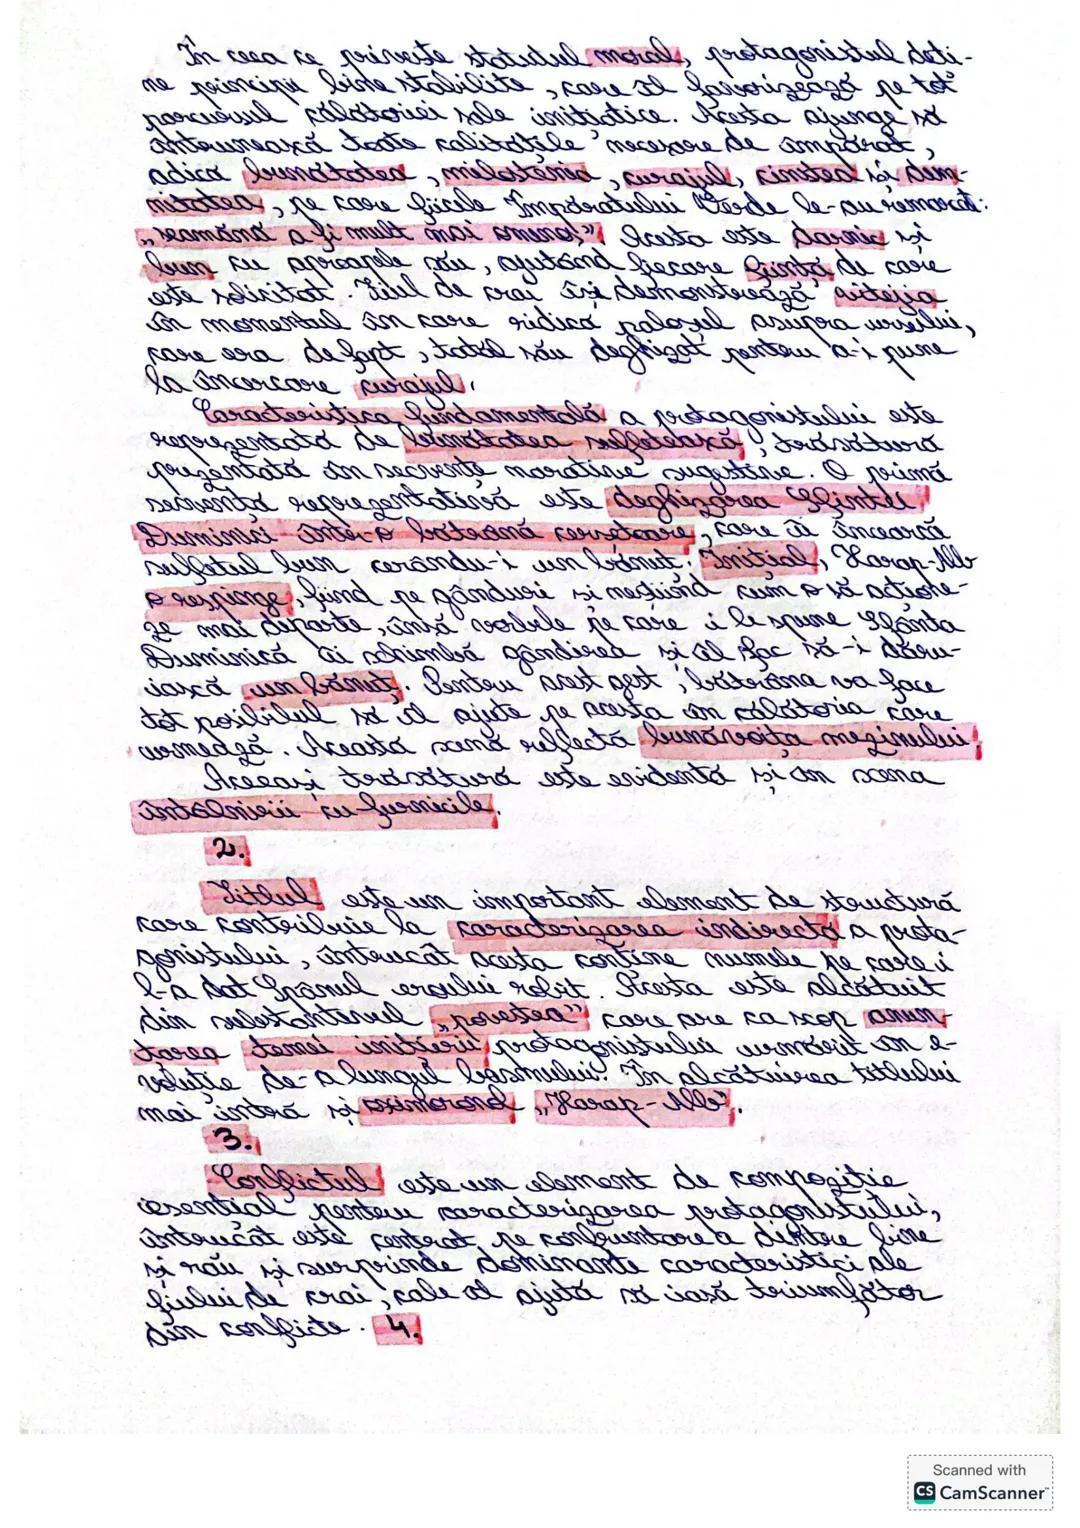 În ceea ce privește statutul moral, protagonistul deți-
ne principii bine stabilite, care îl favorizează pe tot
parcursul călătoriei sale inițiatice. Acesta ajunge să
întrunească toate calitățile necesare de împărat,
adică bunătatea, milostenia, curajul, cinstea și dem-
nitatea, pe care fiicele Împăratului Verde le-au remarcat:
„seamănă a fi mult mai omenos". Acesta este darnic și
bun cu aproapele său, ajutând fiecare ființă de care
este solicitat. Fiul de crai își demonstrează vitejia
în momentul în care ridică paloșul asupra ursului,
care era de fapt, tatăl său deghizat pentru a-i pune
la încercare curajul.
Caracteristica fundamentală a protagonistului este
reprezentată de bunătatea sufletească, trăsătură
prezentată în secvențe narative sugestive. O primă
secvență reprezentativă este deghizarea Sfintei
Duminici într-o bătrână cerșetoare, care îi încearcă
sufletul bun cerându-i un bănuț. Inițial, Harap-Alb
o respinge, fiind pe gânduri și neștiind cum o să acțione-
ze mai departe, însă vorbele pe care i le spune Sfânta
Duminică îi schimbă gândirea și îl fac să-i dăru-
iască un bănuț. Pentru acest gest, bătrâna va face
tot posibilul să îl ajute pe acesta în călătoria care
urmează. Această scenă reflectă bunăvoința mezinului.
Aceeași trăsătură este evidentă și în scena
întâlnirii cu furnicile.
2.
Titlul este un important element de structură
care contribuie la caracterizarea indirectă a prota-
gonistului, întrucât acesta conține numele pe care i
l-a dat Spânul eroului robit. Acesta este alcătuit
din substantivul „povestea" care are ca scop anun-
țarea temei inițierii protagonistului urmărit în e-
voluție de-a lungul basmului. În alcătuirea titlului
mai intră și oximoronul „Harap-Alb".
3.
Conflictul este un element de compoziție
esențial pentru caracterizarea protagonistului,
întrucât este centrat pe confruntarea dintre bine
și rău și surprinde dominante caracteristici ale
fiului de crai, cale îl ajută să iasă triumfător
din conflicte. 4.
Scanned with
CS CamScanner